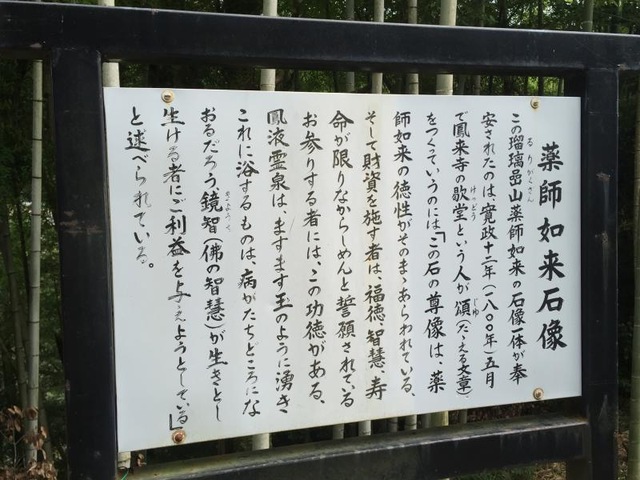 薬師如来石像
この瑠璃嵒山薬師如来の石像一体が奉
るりがんさん
安されたのは、寛政十二年(一八〇〇年)五月
で鳳来寺の歇堂という人が頌(たゝえる文章)
けつどう
じゅ
をつくっていうのには「この石の尊像は、薬
師如来の徳性がそのまゝあらわれている、
そして財資を施す者は、福徳、智慧、寿
命が限りなからしめんと誓願されている
お参りする者には、この功徳がある、
鳳液霊泉は、ますます玉のように湧き
これに浴するものは、病がたちどころにな
おるだろう、鏡智(佛の智慧)が生きとし
きょうち
生ける者にご利益を与えようとしている」
と述べられている。